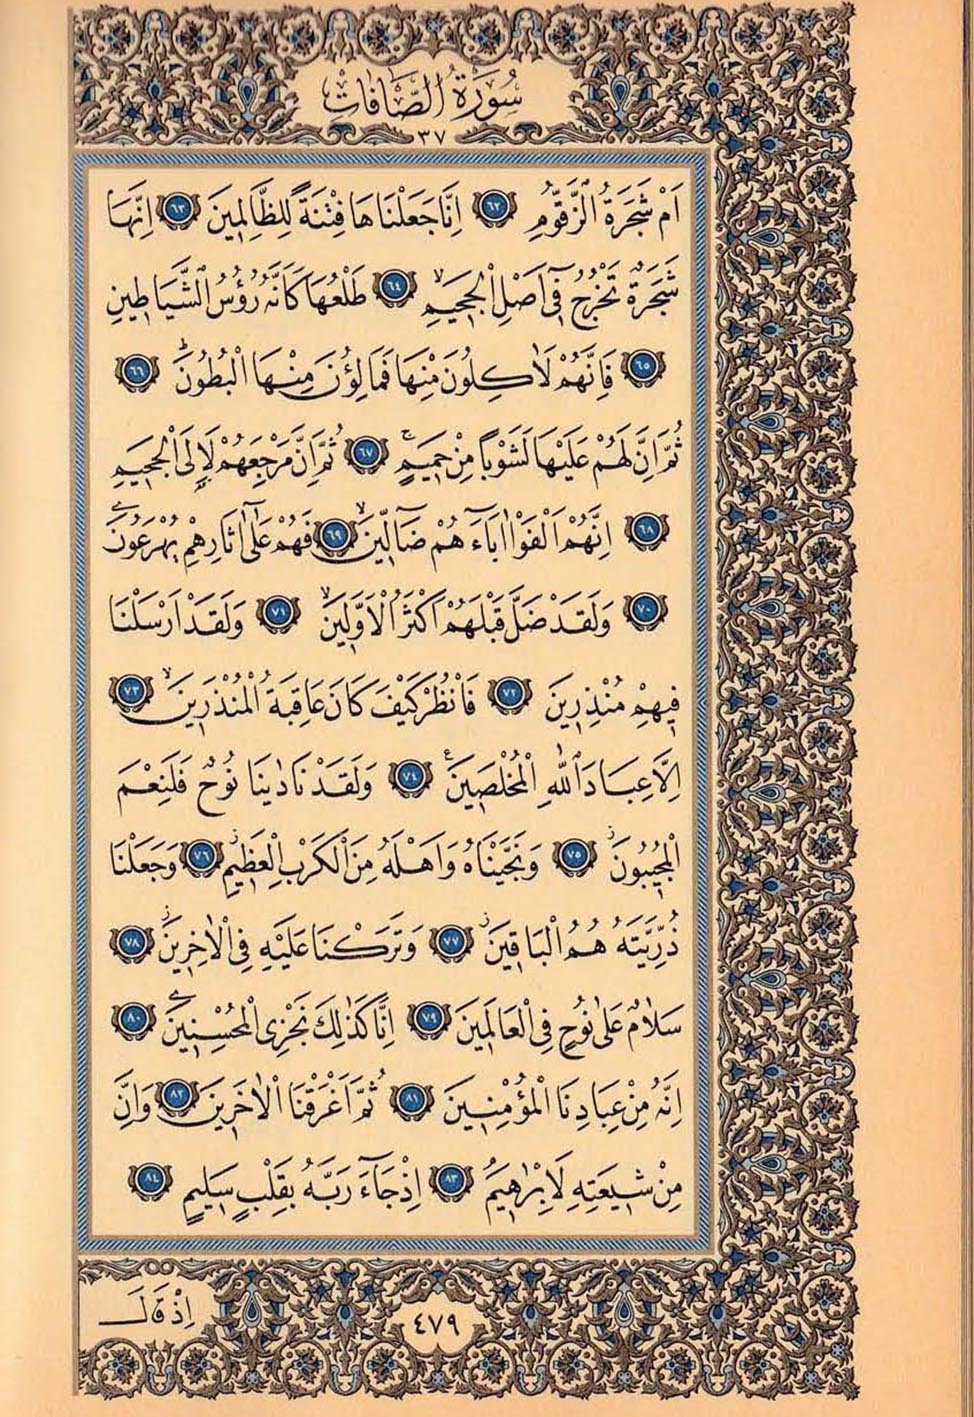 سُورَةُ الصَّافَّاتِ
٣٧
اَمْ شَجَرَةُ الزَّقُّومِ ٦٢ اِنَّا جَعَلْنَاهَا فِتْنَةً لِلظَّالِمِينَ ٦٣ اِنَّهَا
شَجَرَةٌ تَخْرُجُ فِٓي اَصْلِ الْجَحِيمِۙ ٦٤ طَلْعُهَا كَاَنَّهُ رُؤُسُ الشَّيَاطِينِ
٦٥ فَاِنَّهُمْ لَاٰكِلُونَ مِنْهَا فَمَالِؤُنَ مِنْهَا الْبُطُونَۜ ٦٦
ثُمَّ اِنَّ لَهُمْ عَلَيْهَا لَشَوْبًا مِنْ حَمِيمٍۚ ٦٧ ثُمَّ اِنَّ مَرْجِعَهُمْ لَاِلَى الْجَحِيمِ
٦٨ اِنَّهُمْ اَلْفَوْا اٰبَٓاءَهُمْ ضَٓالِّينَۙ ٦٩ فَهُمْ عَلٰٓى اٰثَارِهِمْ يُهْرَعُونَ
٧٠ وَلَقَدْ ضَلَّ قَبْلَهُمْ اَكْثَرُ الْاَوَّلِينَۙ ٧١ وَلَقَدْ اَرْسَلْنَا
فِيهِمْ مُنْذِرِينَ ٧٢ فَانْظُرْ كَيْفَ كَانَ عَاقِبَةُ الْمُنْذَرِينَۙ ٧٣
اِلَّا عِبَادَ اللّٰهِ الْمُخْلَصِينَ ٧٤ وَلَقَدْ نَادٰينَا نُوحٌ فَلَنِعْمَ
الْمُجِيبُونَ ٧٥ وَنَجَّيْنَاهُ وَاَهْلَهُ مِنَ الْكَرْبِ الْعَظِيمِ ٧٦ وَجَعَلْنَا
ذُرِّيَّتَهُ هُمُ الْبَاقِينَ ٧٧ وَتَرَكْنَا عَلَيْهِ فِي الْاٰخِرِينَ ٧٨
سَلَامٌ عَلٰى نُوحٍ فِي الْعَالَمِينَ ٧٩ اِنَّا كَذٰلِكَ نَجْزِي الْمُحْسِنِينَ ٨٠
اِنَّهُ مِنْ عِبَادِنَا الْمُؤْمِنِينَ ٨١ ثُمَّ اَغْرَقْنَا الْاٰخَرِينَ ٨٢ وَاِنَّ
مِنْ شِيعَتِهِ لَاِبْرٰهِيمُ ٨٣ اِذْ جَٓاءَ رَبَّهُ بِقَلْبٍ سَلِيمٍ ٨٤
٤٧٩
اِذْ قَالَ